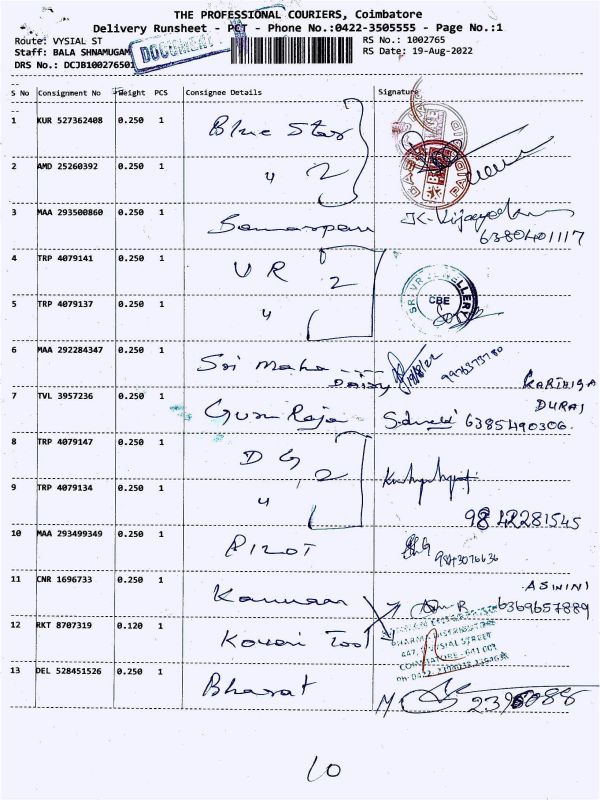 THE PROFESSIONAL COURIERS, Coimbatore
Delivery Runsheet - PCT - Phone No.:0422-3505555 - Page No.:1
Route: VYSIAL ST
RS No.: 1002765
Staff: BALA SHNAMUGAM
DOCUMENT
RS Date: 19-Aug-2022
DRS No.: DCJB100276501
S No Consignment No Weight PCS Consignee Details Signature
1 KUR 527362408 0.250 1 Blue Star
2 AMD 25260392 0.250 1 " 2
3 MAA 293500860 0.250 1
6380401117
4 TRP 4079141 0.250 1 V R 2
5 TRP 4079137 0.250 1 "
CBE
6 MAA 292284347 0.250 1 Sri Maha ----
19/8/22
7 TVL 3957236 0.250 1 Guru Raja 6385490306.
DURAI
8 TRP 4079147 0.250 1 D G 2
9 TRP 4079134 0.250 1 "
9842281545
10 MAA 293499349 0.250 1
9843076636
11 CNR 1696733 0.250 1
ASININI
6369657889
12 RKT 8707319 0.120 1 Kovai Tool
447, VYSIAL STREET
COIMBATORE - 641 001
13 DEL 528451526 0.250 1 Bharat
10